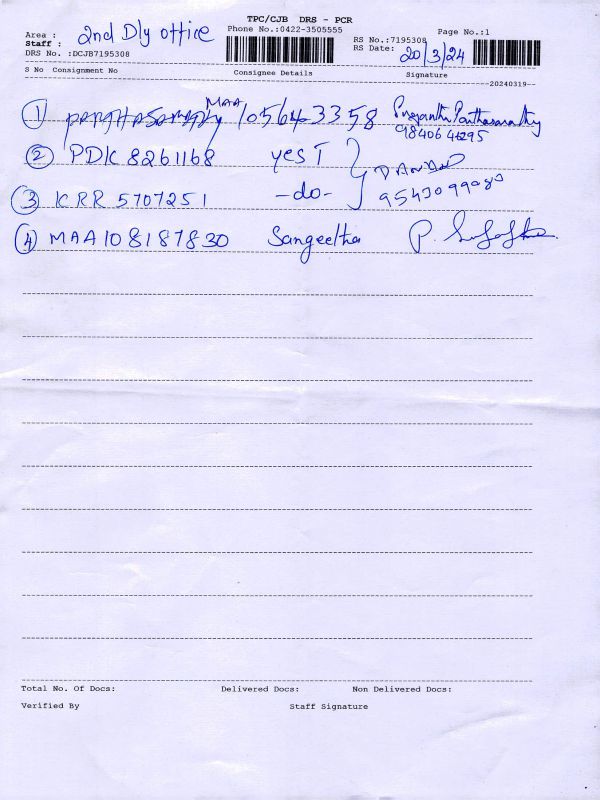 TPC/CJB DRS - PCR
Phone No.:0422-3505555
Page No.:1
Area : 2nd Dly office
Staff :
RS No.:7195308
DRS No. :DCJB7195308
RS Date: 20/3/24
S No Consignment No Consignee Details Signature
20240319
1 MAA 105643358 Parthasarathy
9840646295
2 PDK 8261168 yes T
3 KRR 5707251 -do-
4 MAA108187830 Sangeetha P.
Total No. Of Docs: Delivered Docs: Non Delivered Docs:
Verified By Staff Signature